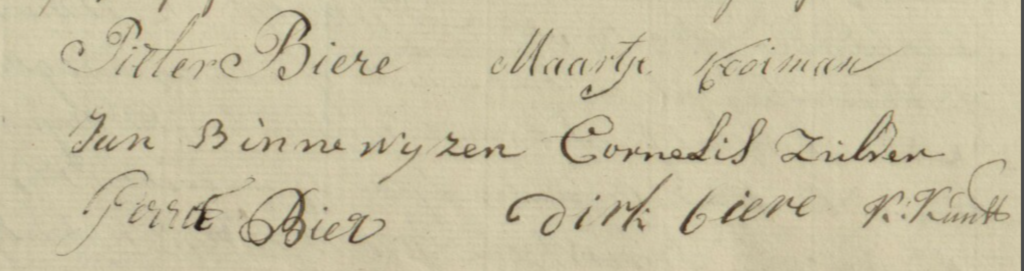 Pieter Biere Maartje Kooiman
Jan Binnewyzen Cornelis Zulder
Biere Dirk biere K: Kundt